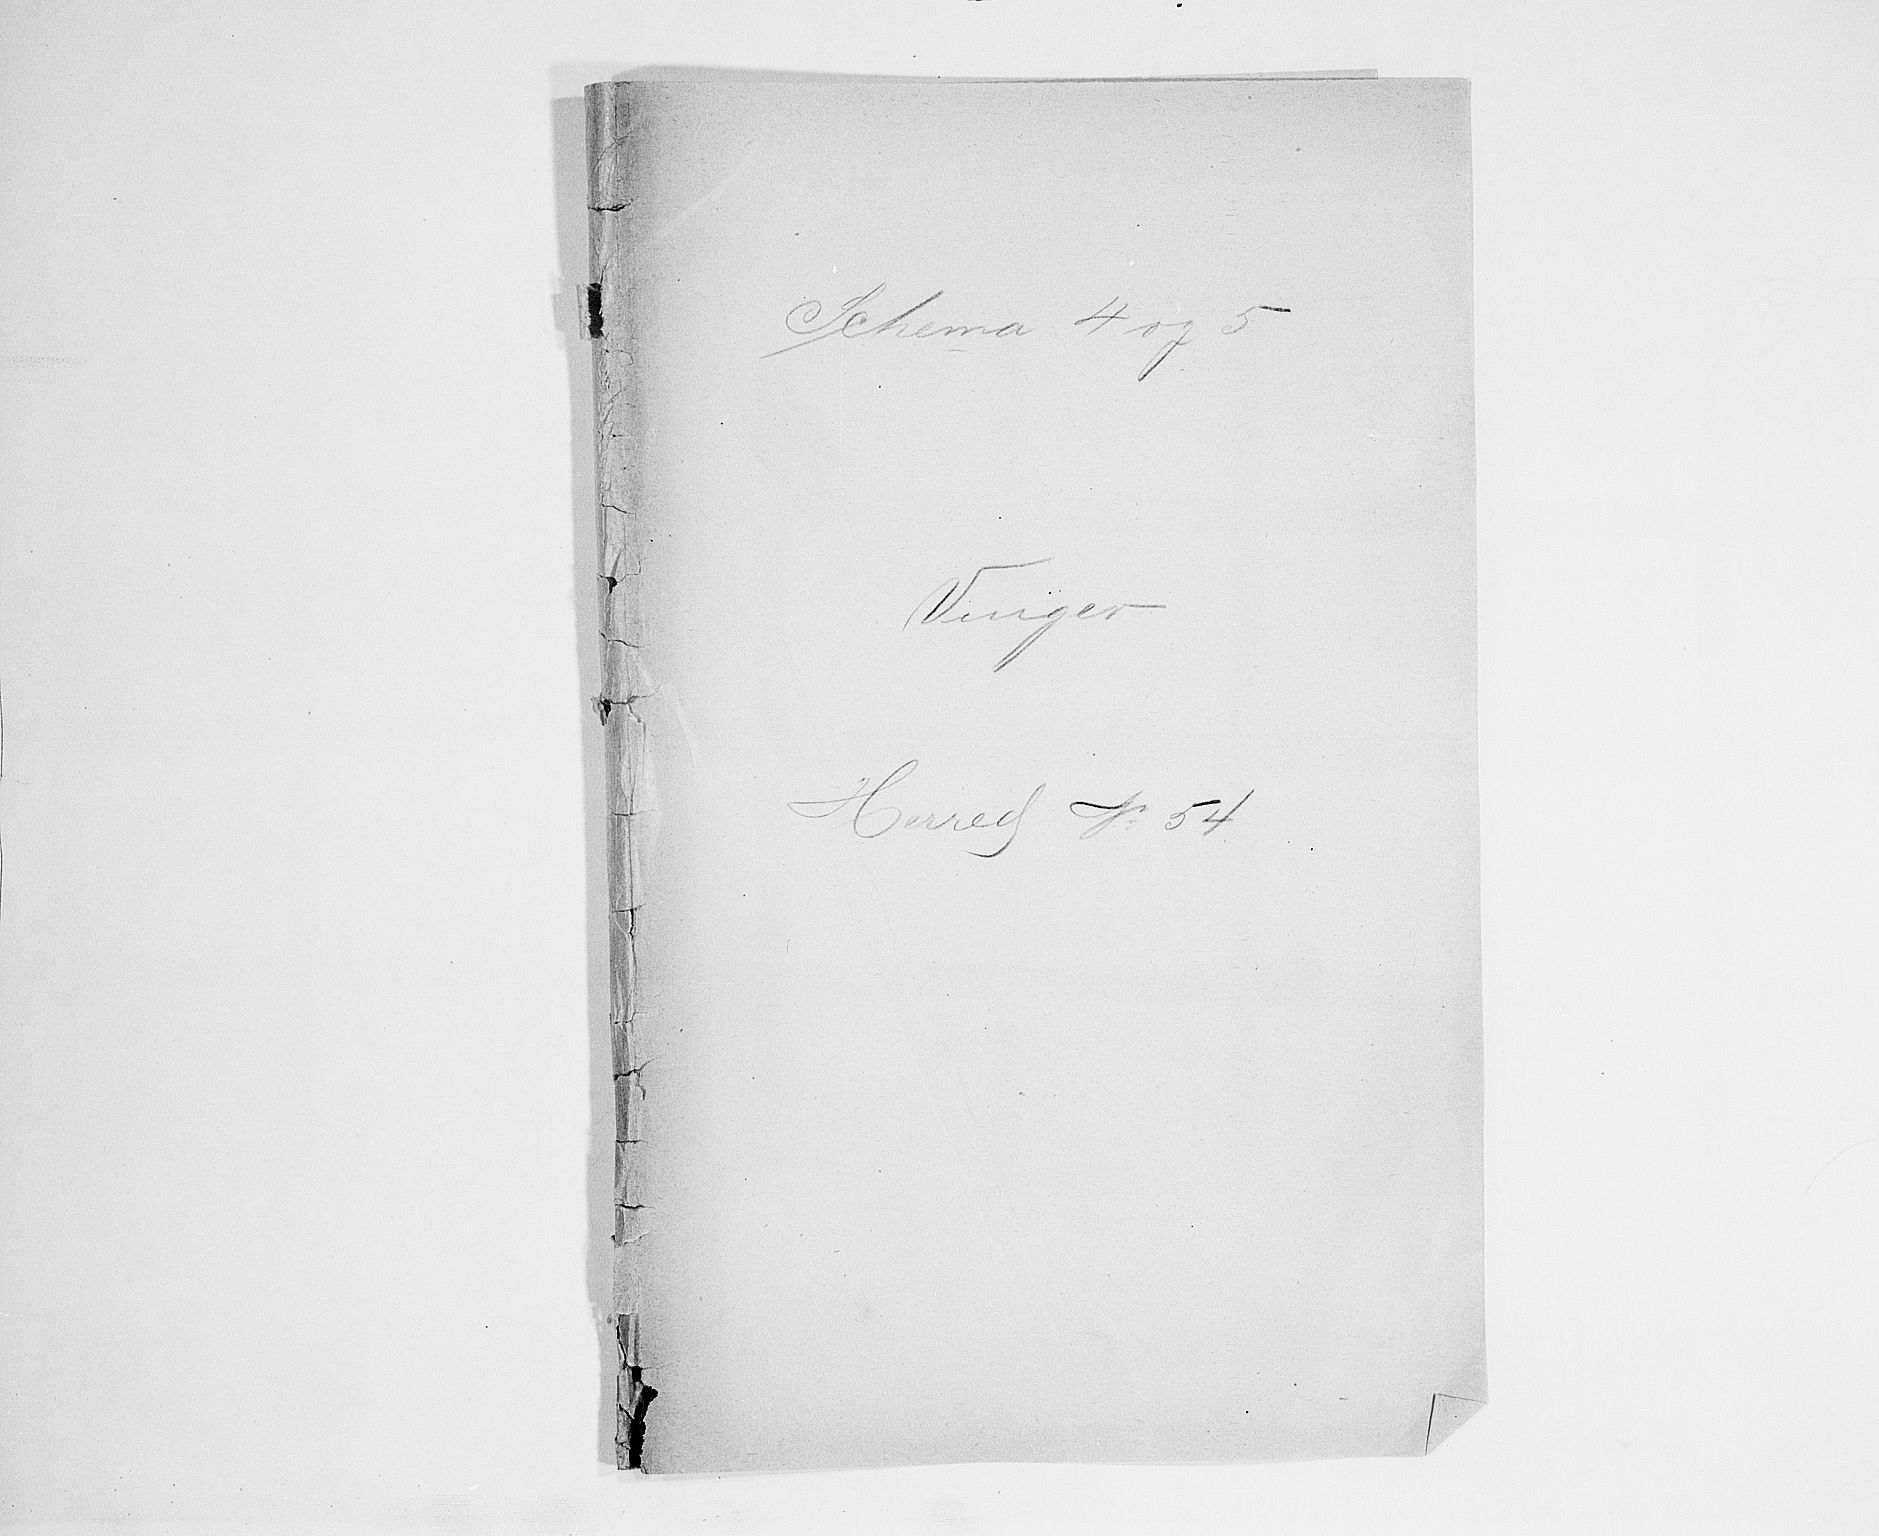 Schema 4 og 5
Vinger
Herred № 54